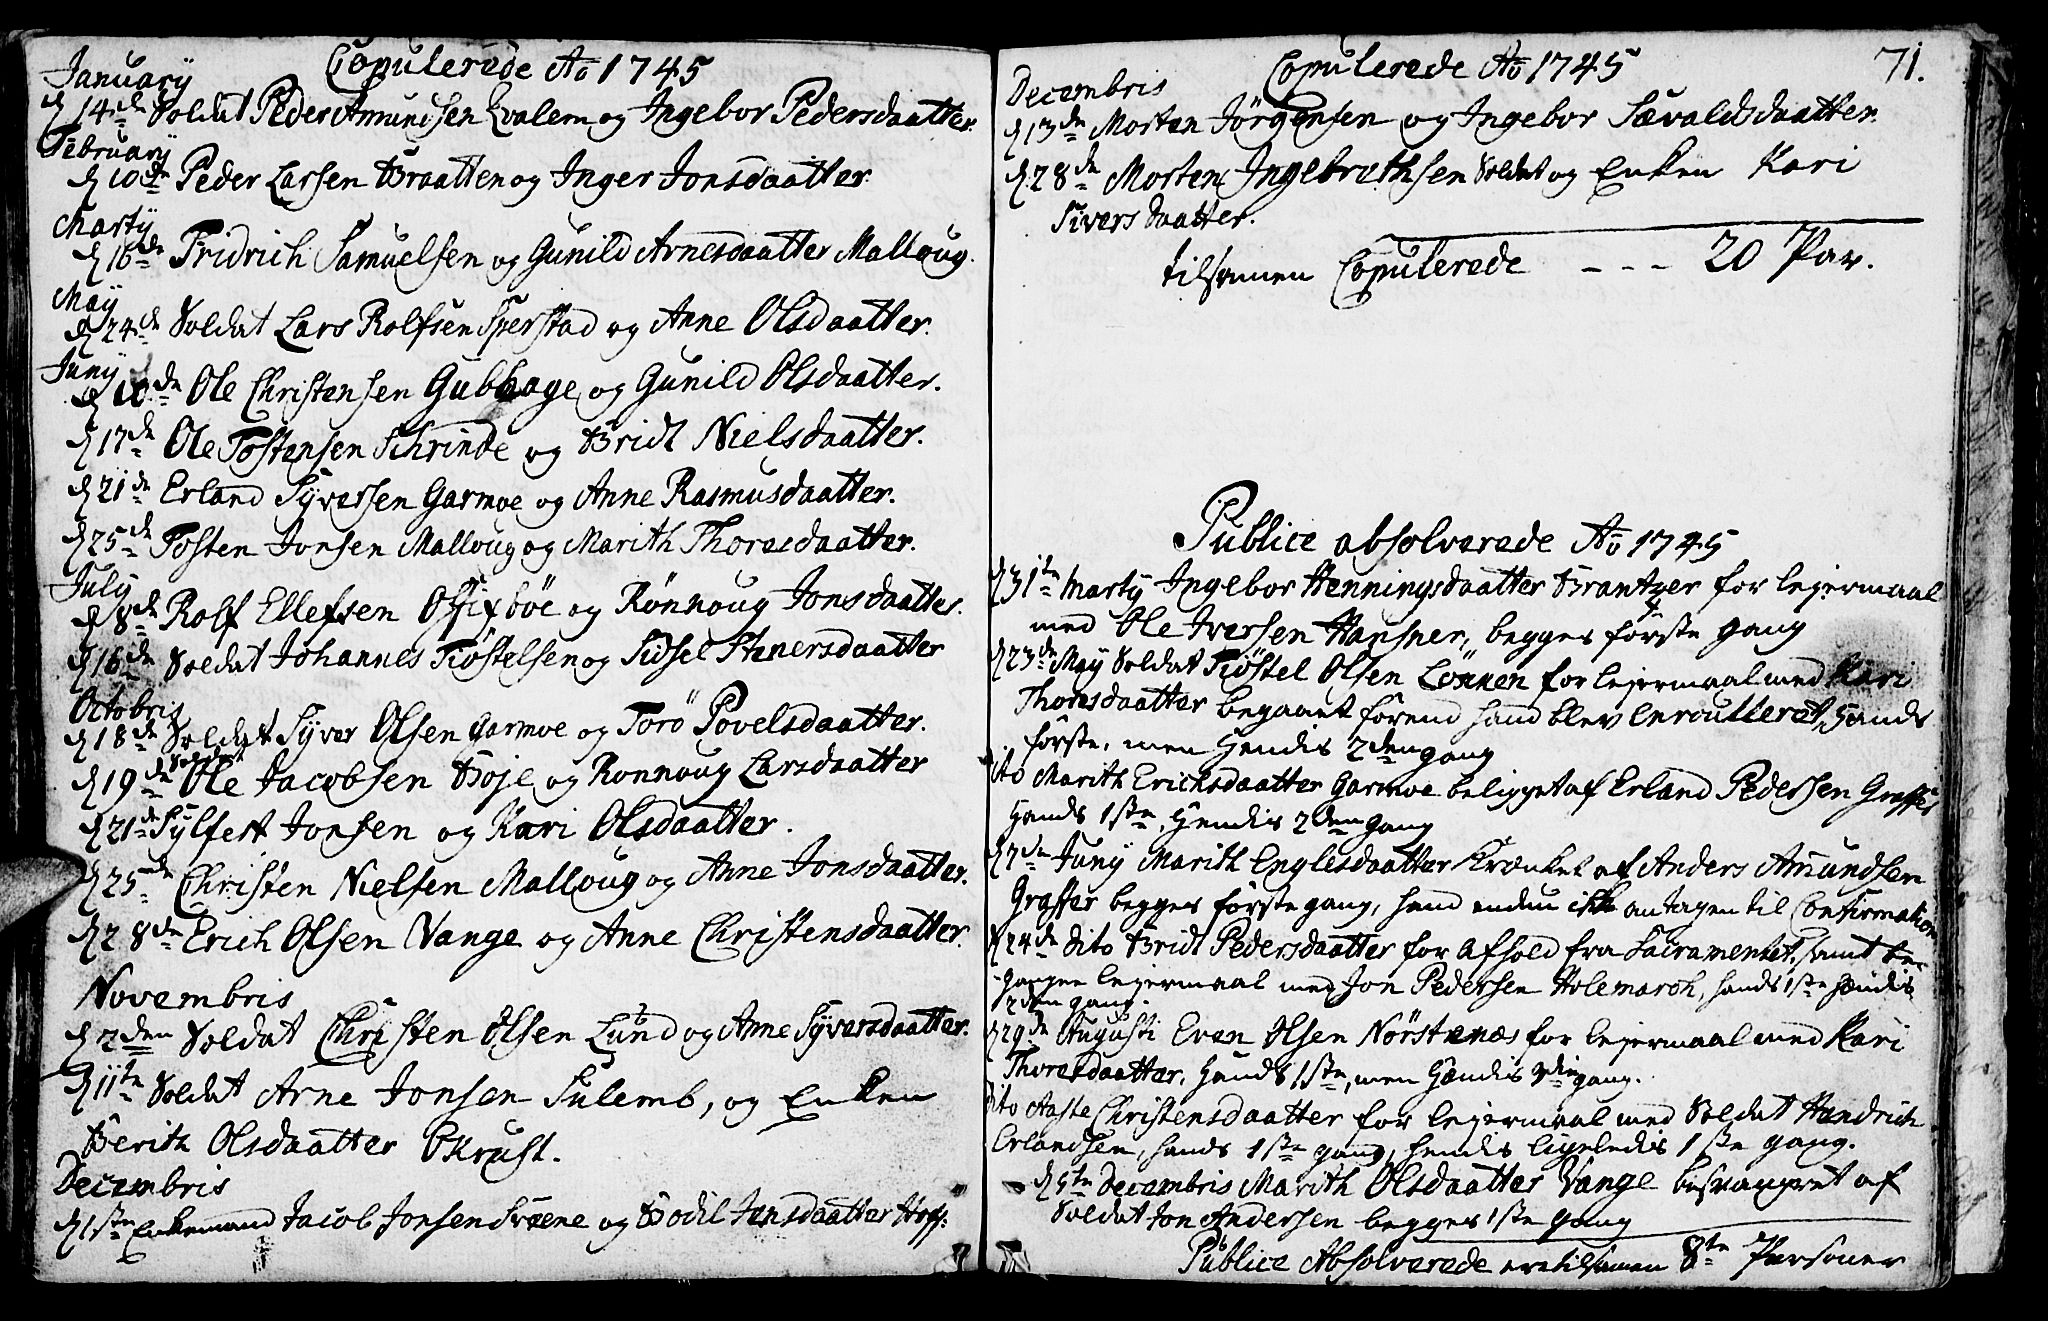 Copulerede Ao 1745
January
d 14de Soldat Peder Amundsen Qvalem og Ingebor Pedersdaatter.
February
d 10de Peder Larsen Braatten og Inger Jonsdaatter.
Marty
d 16de Fridrich Samuelsen og Gunild Arnesdaatter Malloug.
May
d 24de Soldat Lars Rolfsen Sperstad og Anne Olsdaatter.
Juny
d 10de Ole Christensen Gubhage og Gunild Olsdaatter.
d 17de Ole Tostensen Schrinde og Bridt Nielsdaatter.
d 21de Erland Syversen Garmoe og Anne Rasmusdaatter.
d 25de Tosten Jonsen Malloug og Marith Thoresdaatter.
July
d 8de Rolf Ellefsen og Rönnoug Jonsdaatter.
d 16de Soldat Johannes Tiöstelsen og Sidsel Stenersdaatter
Octobris
d 18de Soldat Syver Olsen Garmoe og Torö Povelsdaatter.
d 19de Soldat Ole Jacobsen Böje og Ronnoug Larsdaatter
d 21de Sylfest Jonsen og Kari Olsdaatter.
d 25de Christen Nielsen Malloug og Anne Jonsdaatter.
d 28de Erich Olsen Vange og Anne Christensdaatter.
Novembris
d 2den Soldat Christen Olsen Lund og Anne Syversdaatter.
d 11te Soldat Arne Jonsen Sulemb, og Enken
Berith Olsdaatter Skrust.
Decembris
d 1ste Enkemand Jacob Jonsen Sveene og Bodil Jensdaatter
Copulerede Ao 1745
71.
Decembris
d 13de Morten Jörgensen og Ingebor Sævaldsdaatter.
d 28de Morten Ingebrethsen Soldat og Enken Kari
Siversdaatter.
tilsamen Copulerede - - - 20 Par.
Publice absolverede Ao 1745
d 31te Marty Ingebor Henningsdaatter Brantzer for lejermaal
med Ole Iversen Hansner, begges förste gang
d 23de May Soldat Tiöstel Olsen Lönnen for lejermaal med Kari
Thoresdaatter begaaet förend hand blev enroulleret, hands
förste, men Hendis 2den gang
dito Marith Erichsdaatter Garmoe beligget af Erland Pedersen Graffer
Hands 1ste, Hendis 2den gang
d 7de Juny Marith Englesdaatter Krænket af Anders Amundsen
Graffer begges förste gang, hand endnu ikke antagen til Confirmation
d 24de dito Bridt Pedersdaatter for afhold fra Sacramentet, samt be-
gangen lejermaal med Jon Pedersen Holemarch, hands 1ste hendis
2den gang.
d 29de Augusti Even Olsen Nörstenæs for lejermaal med Kari
Thoresdaatter, Hands 1ste, men Hendis 3die gang.
dito Aaste Christensdaatter for lejermaal med Soldat Hendrich
Erlandsen, hands 1ste gang, hendis ligeledis 1ste gang.
d 5te Decembris Marith Olsdaatter Vange besvangret af
Soldat Jon Andersen begges 1ste gang
Publice Absolverede ere tilsamen 8te Personer